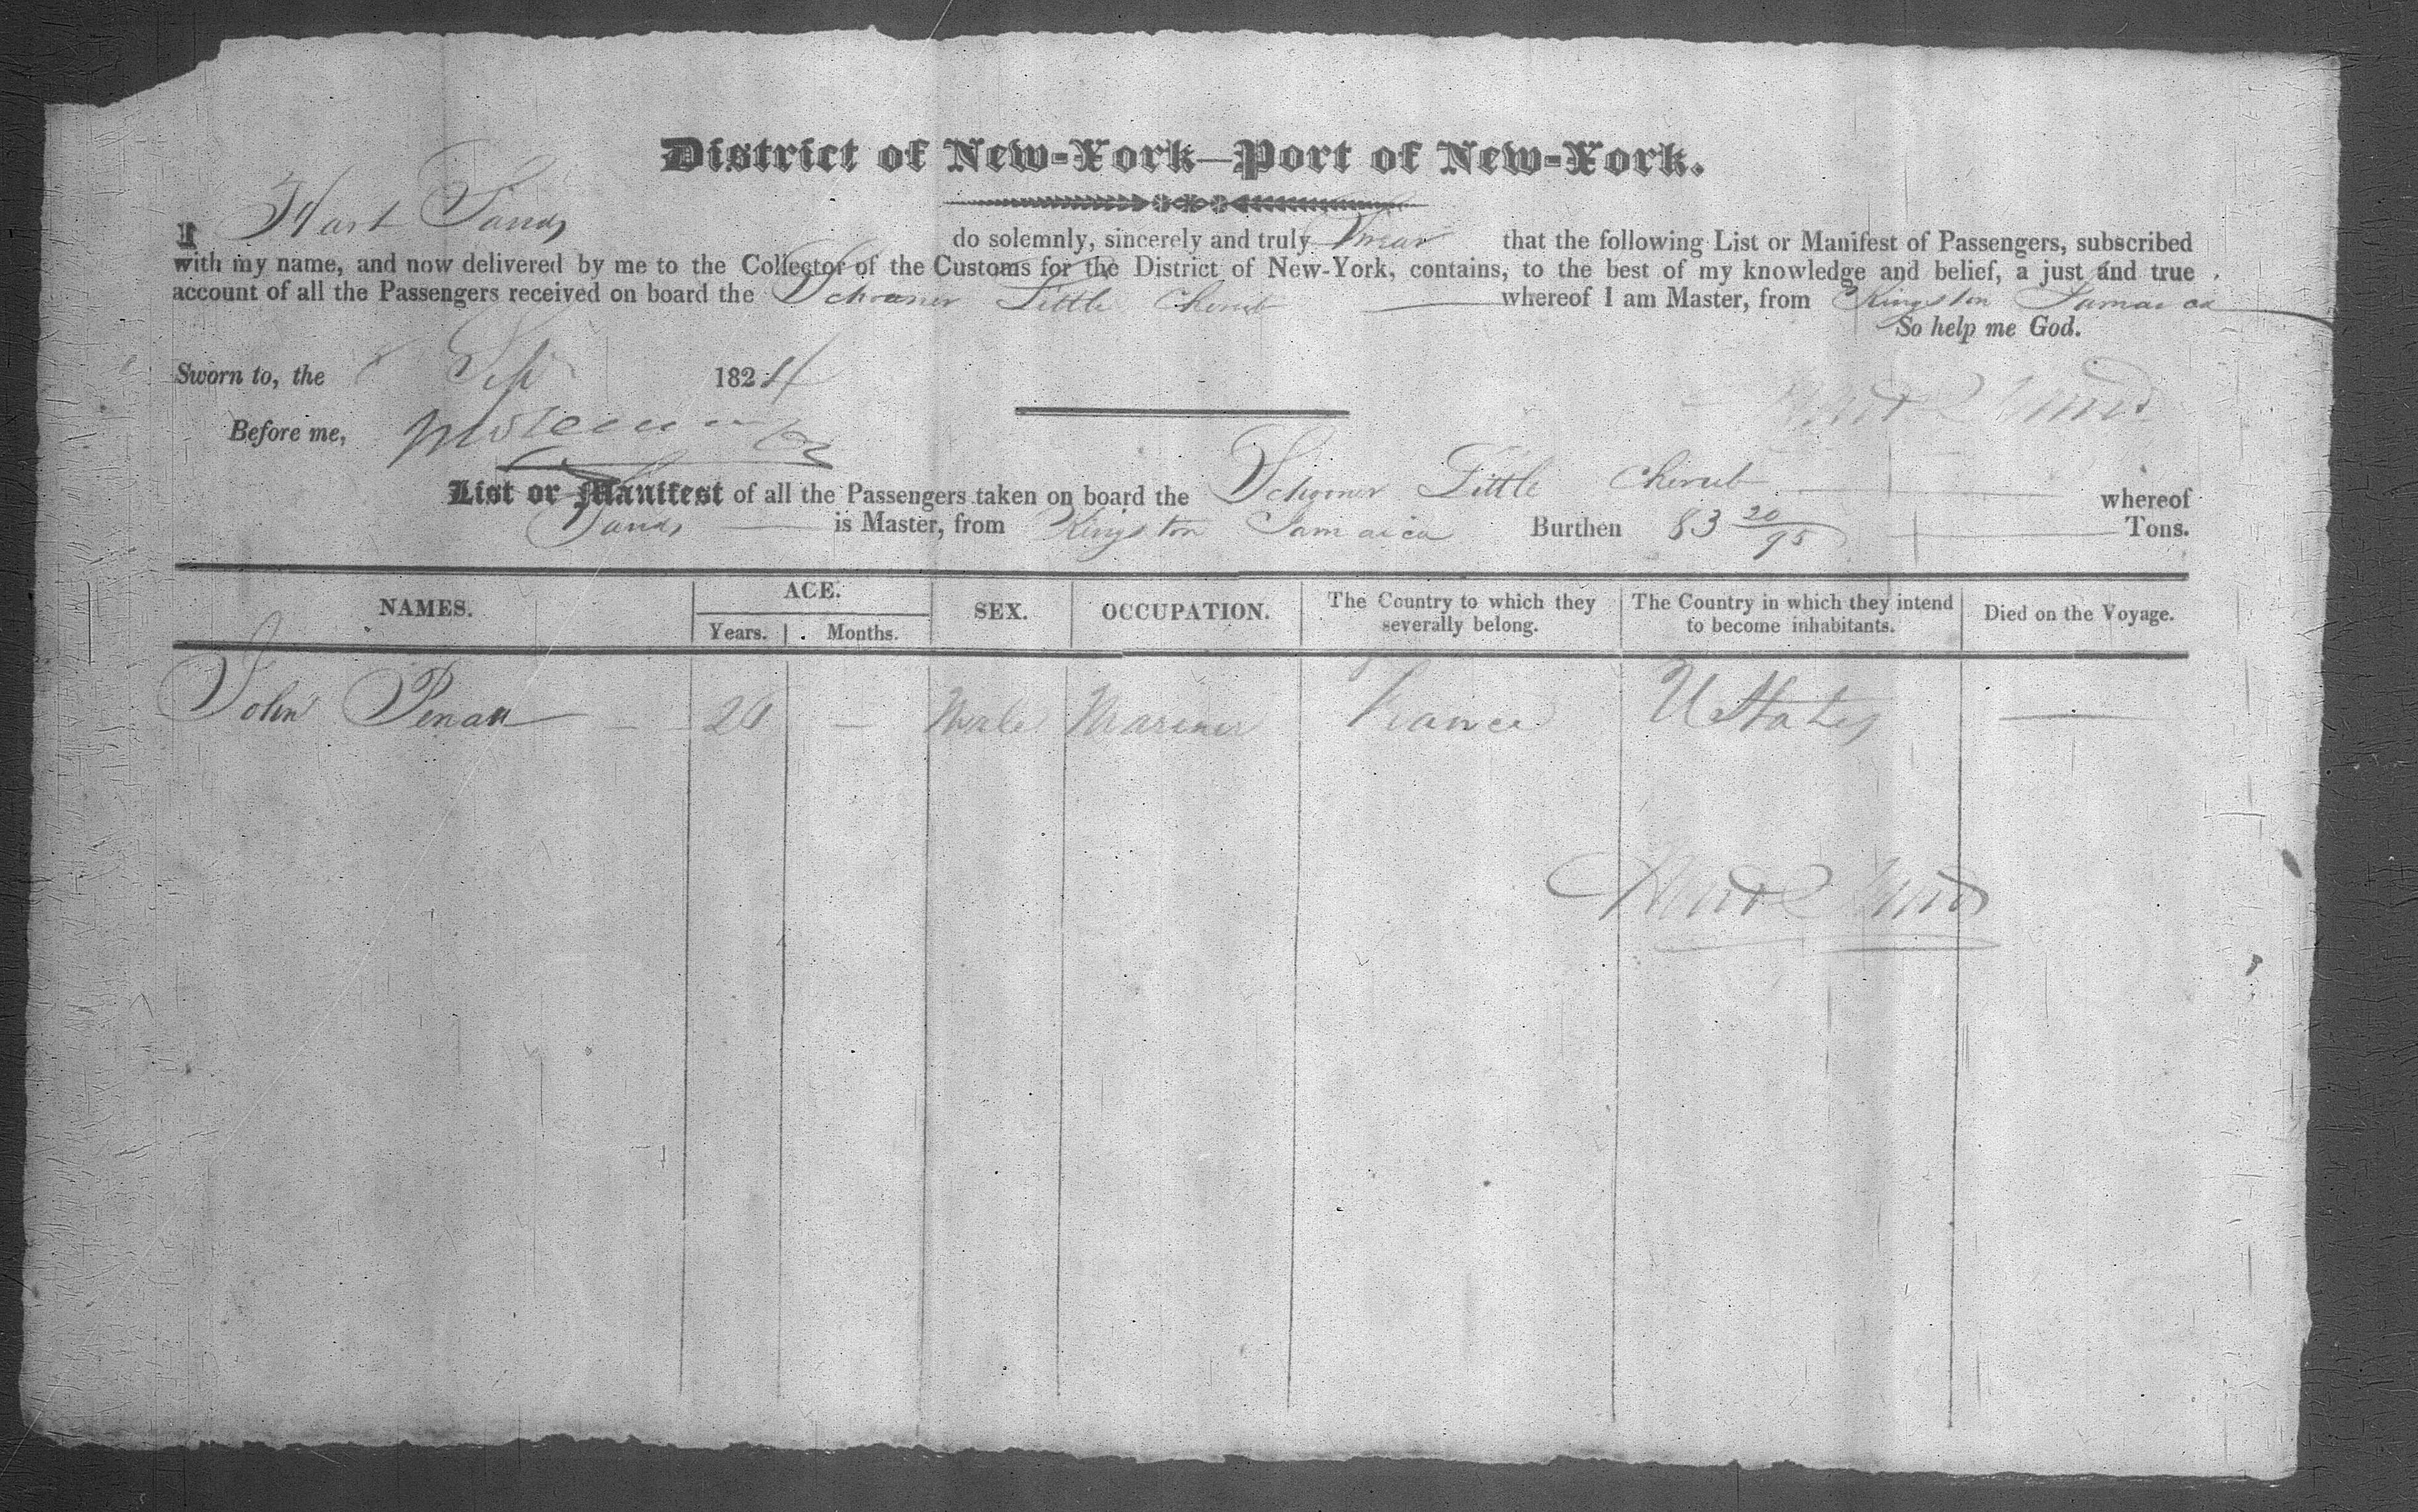 District of New-York—Port of New-York.
I Hart Sands do solemnly, sincerely and truly swear that the following List or Manifest of Passengers, subscribed
with my name, and now delivered by me to the Collector of the Customs for the District of New-York, contains, to the best of my knowledge and belief, a just and true
account of all the Passengers received on board the Schooner Little Cherub whereof I am Master, from Kingston Jamaica
So help me God.
Sworn to, the Sep 1824
Before me,
Hart Sands
List or Manifest of all the Passengers taken on board the Schooner Little Cherub whereof
Sands is Master, from Kingston Jamaica Burthen 83 20/95 Tons.
NAMES. AGE. Years. Months. SEX. OCCUPATION. The Country to which they severally belong. The Country in which they intend to become inhabitants. Died on the Voyage.
John — Male Mariner France U States —
Hart Sands